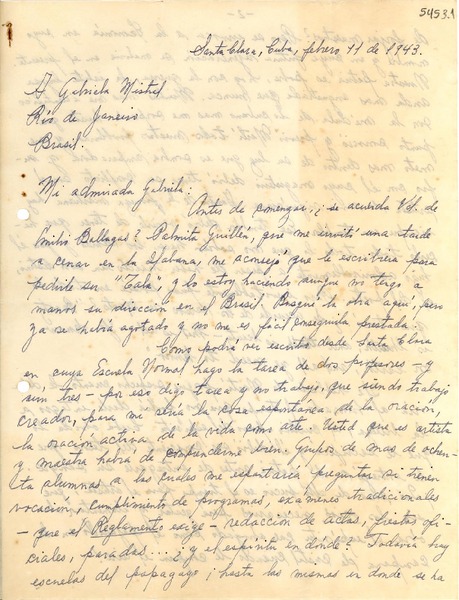 5453.1
Santa Clara, Cuba, febrero 11 de 1943.
A Gabriela Mistral
Río de Janeiro
Brasil.
Mi admirada Gabriela:
Antes de comenzar, ¿se acuerda Vd. de
Emilio Ballagas? Palmita Guillén, que me invitó una tarde
a cenar en la Habana, me aconsejó que le escribiera para
pedirle su "Tala", y lo estoy haciendo aunque no tengo a
manos su dirección en el Brasil. Busqué la obra aquí, pero
ya se había agotado y no me es fácil conseguirla prestada.
Como podrá ver escribo desde Santa Clara
en cuya Escuela Normal hago la tarea de dos profesores - y
aun tres - por eso digo tarea y no trabajo, que siendo trabajo
creador, para mí sería la cosa espontánea, de la oración,
la oración activa, de la vida como arte. Usted que es artista
y maestra habrá de comprenderme bien. Grupos de mas de ochen-
ta alumnas a las cuales me espantaría preguntar si tienen
vocación, cumplimiento de programas, exámenes tradicionales
- que el Reglamento exige - redacción de actas, fiestas ofi-
ciales, paradas... ¿y el espíritu en dónde? Todavía hay
escuelas del papagayo ¡hasta las mismas en donde se ha